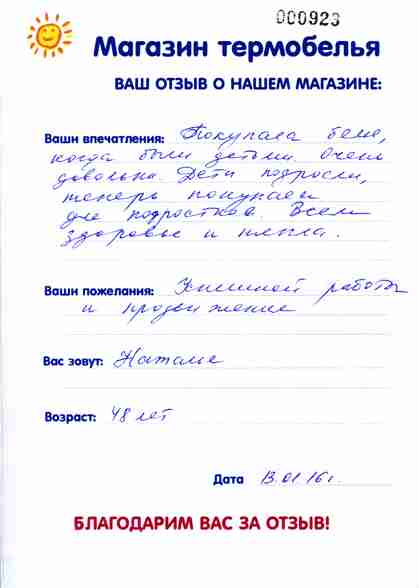 000923
Магазин термобелья
ВАШ ОТЗЫВ О НАШЕМ МАГАЗИНЕ:
Ваши впечатления: Покупала белье,
когда были детьми. Очень
довольны. Дети подросли,
теперь покупаем
для подростков. Всем
здоровье и тепла.
Ваши пожелания: Успешной работы
и продвижение
Вас зовут: Наталье
Возраст: 48 лет
Дата 13.01.16г.
БЛАГОДАРИМ ВАС ЗА ОТЗЫВ!